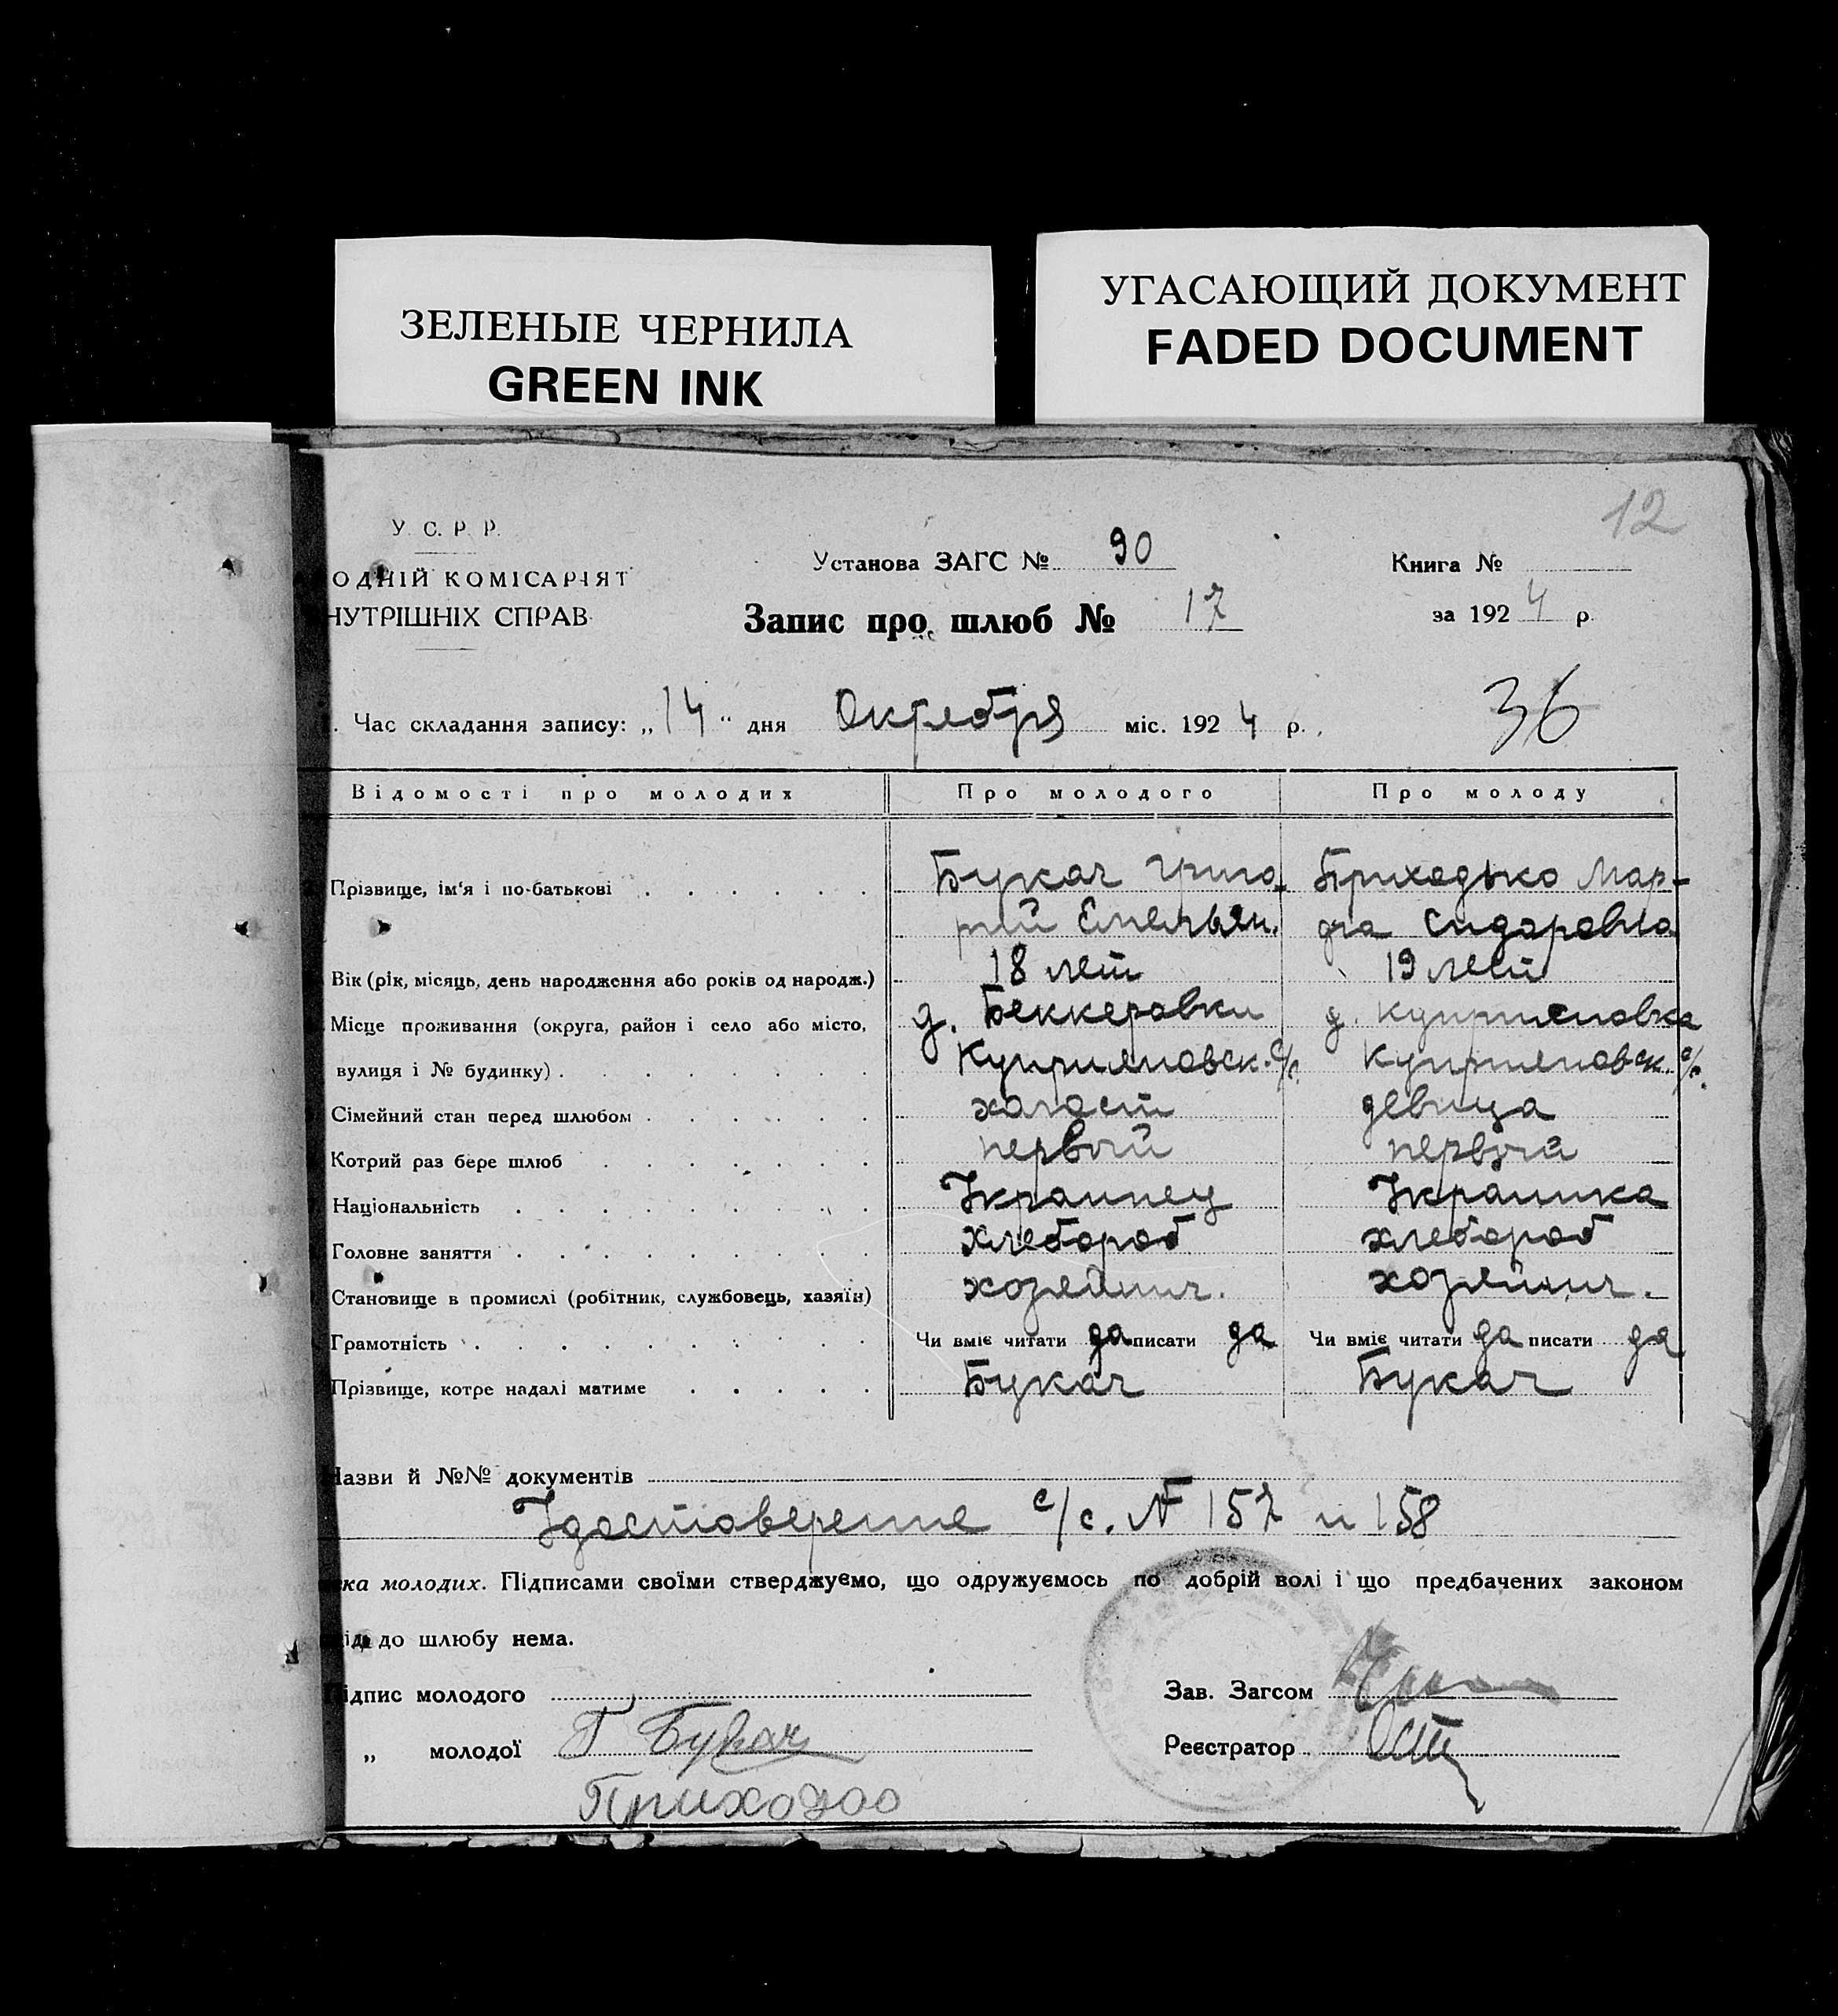 ЗЕЛЕНЫЕ ЧЕРНИЛА
GREEN INK
УГАСАЮЩИЙ ДОКУМЕНТ
FADED DOCUMENT
12
У. С. Р. Р.
ОДНІЙ КОМІСАРІЯТ
НУТРІШНІХ СПРАВ
Установа ЗАГС № 90
Книга №
Запис про шлюб № 17
за 1924 р.
. Час складання запису: „14“ дня Октября міс. 1924 р.
36
Відомості про молодих Про молодого Про молоду
Прізвище, ім'я і по-батькові . . . . . . Букач Григо- Приходько Мар-
рий Емельян. фа Сидаровна
Вік (рік, місяць, день народження або років од народж.) 18 лет 19 лет
Місце проживання (округа, район і село або місто, д. Беккеровки д. Куприяновка
вулиця і № будинку) . . . . . . . Куприяновск. с/с. Куприяновск. с/с.
Сімейний стан перед шлюбом . . . . . . холост девица
Котрий раз бере шлюб . . . . . . . первый первый
Національність . . . . . . . . . Украинец Украинка
Головне заняття . . . . . . . . . хлебороб хлебороб
Становище в промислі (робітник, службовець, хазяїн) хозяинич. хозяинич.
Грамотність . . . . . . . . . Чи вміє читати да писати да Чи вміє читати да писати да
Прізвище, котре надалі матиме . . . . . Букач Букач
Назви й №№ документів
Удостоверение с/с. № 157 и 158
ка молодих. Підписами своїми стверджуємо, що одружуємось по добрій волі і що предбачених законом
ід до шлюбу нема.
Підпис молодого
Зав. Загсом
„ молодої Г Букач
Реєстратор
Приходоо